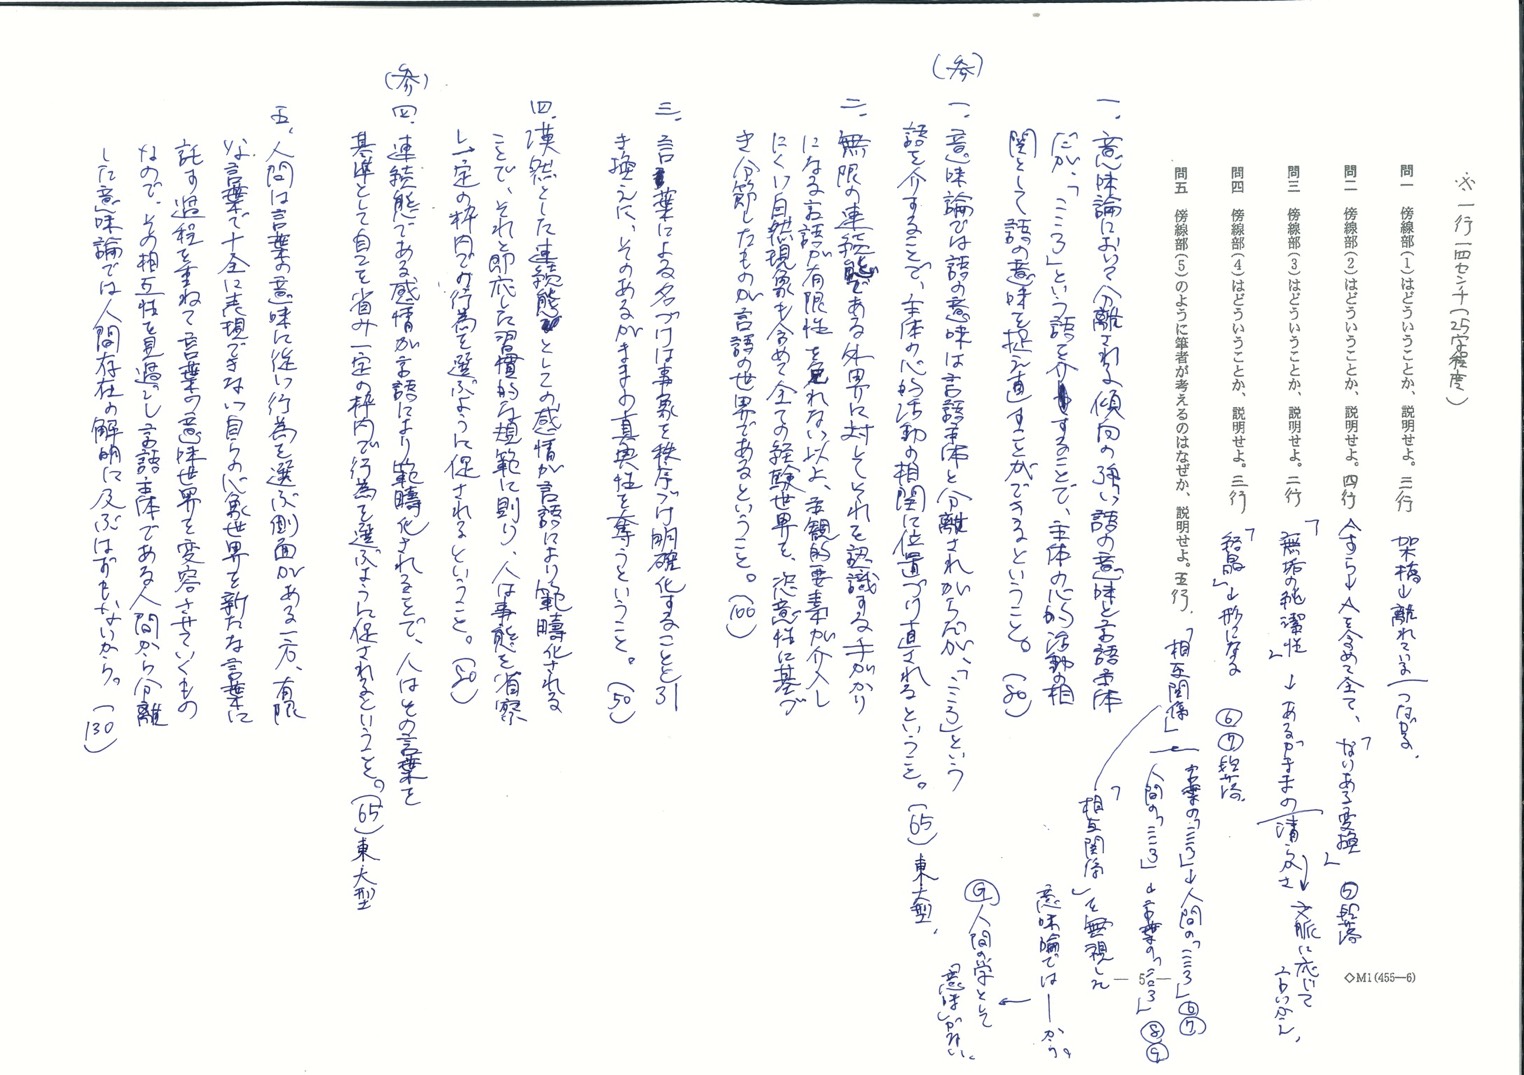 ※一行一四センチ（25字程度）
問一　傍線部(1)はどういうことか、説明せよ。三行
架橋→離れている　つながる、
問二　傍線部(2)はどういうことか、説明せよ。四行
今すら→人を含めて全て、「ないある変換」⑤段落
問三　傍線部(3)はどういうことか、説明せよ。二行
「無垢の純潔性」→あるがままの清らかさ→文脈に応じて
問四　傍線部(4)はどういうことか、説明せよ。三行
「結晶」→形になる　⑥⑦段落
問五　傍線部(5)のように筆者が考えるのはなぜか、説明せよ。五行
「相互関係」
言葉の「こころ」→人間の「こころ」⑥⑦
人間の「こころ」→言葉の「こころ」⑧⑨
「相互関係」を無視した
意味論では―から。
⑨人間の学として
「意味」がない。
一、意味論において分離される傾向の強い語の意味と言語主体
だが、「こころ」という語を介することで、主体の心的活動の相
関として語の意味を捉え直すことができるということ。（80）
（参）一、意味論では語の意味は言語主体と分離されがちだが、「こころ」という
語を介することで、主体の心的活動の相関に位置づけ直されるということ。（65）東大型、
二、無限の連続態である外界に対してそれを認識する手がかり
になる言語が有限性を免れない以上、主観的要素が介入し
にくい自然現象も含めて全ての経験世界を、恣意性に基づ
き分節したものが言語の世界であるということ。（100）
三、言葉による名づけは事象を秩序づけ明確化することと引
き換えに、そのあるがままの真実性を奪うということ。（50）
四、漠然とした連続態としての感情が言語により範疇化される
ことで、それと即応した習慣的な規範に則り、人は事態を省察
し一定の枠内での行為を選ぶように促されるということ。（80）
（参）四、連続態である感情が言語により範疇化されることで、人はその言葉を
基準として自己を省み一定の枠内で行為を選ぶように促されるということ。（65）東大型
五、人間は言葉の意味に従い行為を選ぶ側面がある一方、有限
な言葉で十全に表現できない自らの心象世界を新たな言葉に
託す過程を重ねて言葉の意味世界を変容させていくもの
なので、その相互性を見過ごし言語主体である人間から分離
した意味論では人間存在の解明に及ぶはずもないから。（130）
— 5 —
◇M1(455—6)